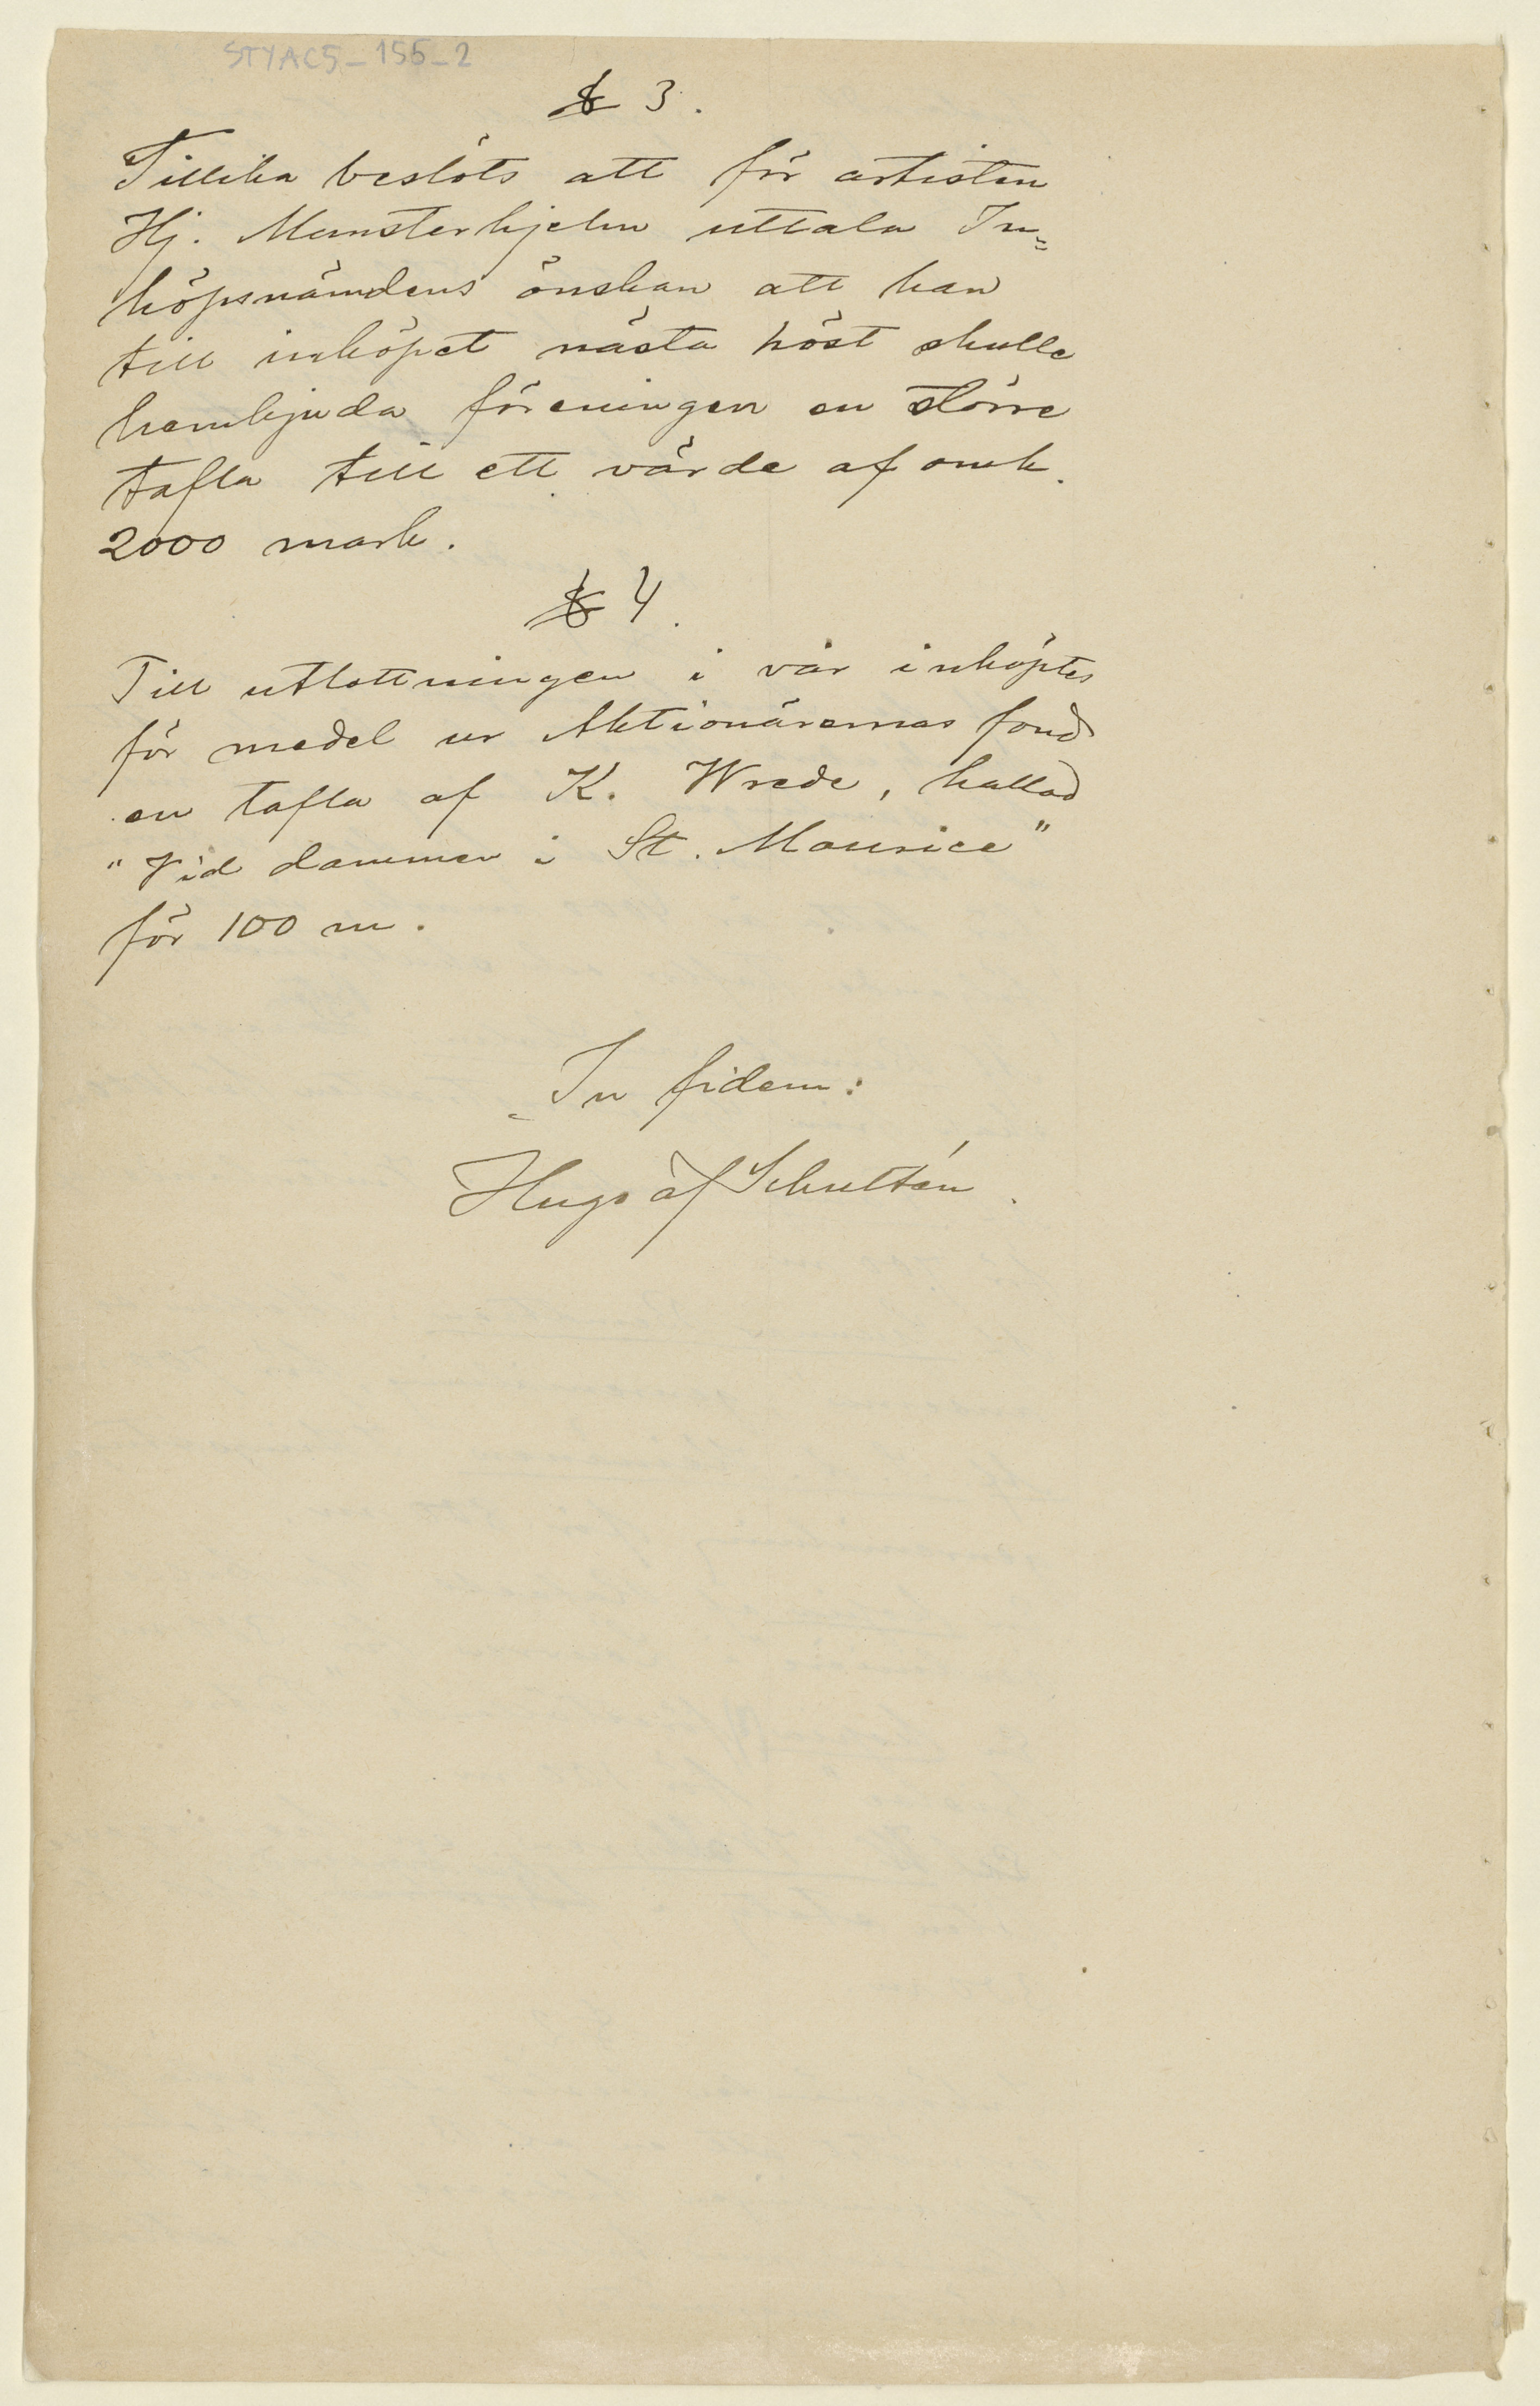 STYAC5_155_2
§ 3.
Tillika beslöts att för artisten
Hj. Munsterhjelm uttala In=
köpsnämdens önskan att han
till inköpet nästa höst skulle
hembjuda föreningen en större
tafla till ett värde af omk.
2000 mark.
§ 4.
Till utlottningen i vår inköptes
för medel ur Aktionärernas fond
en tafla af K. Wrede, kallad
"Vid dammen i St. Maurice"
för 100 m.
In fidem:
Hugo af Schultén.